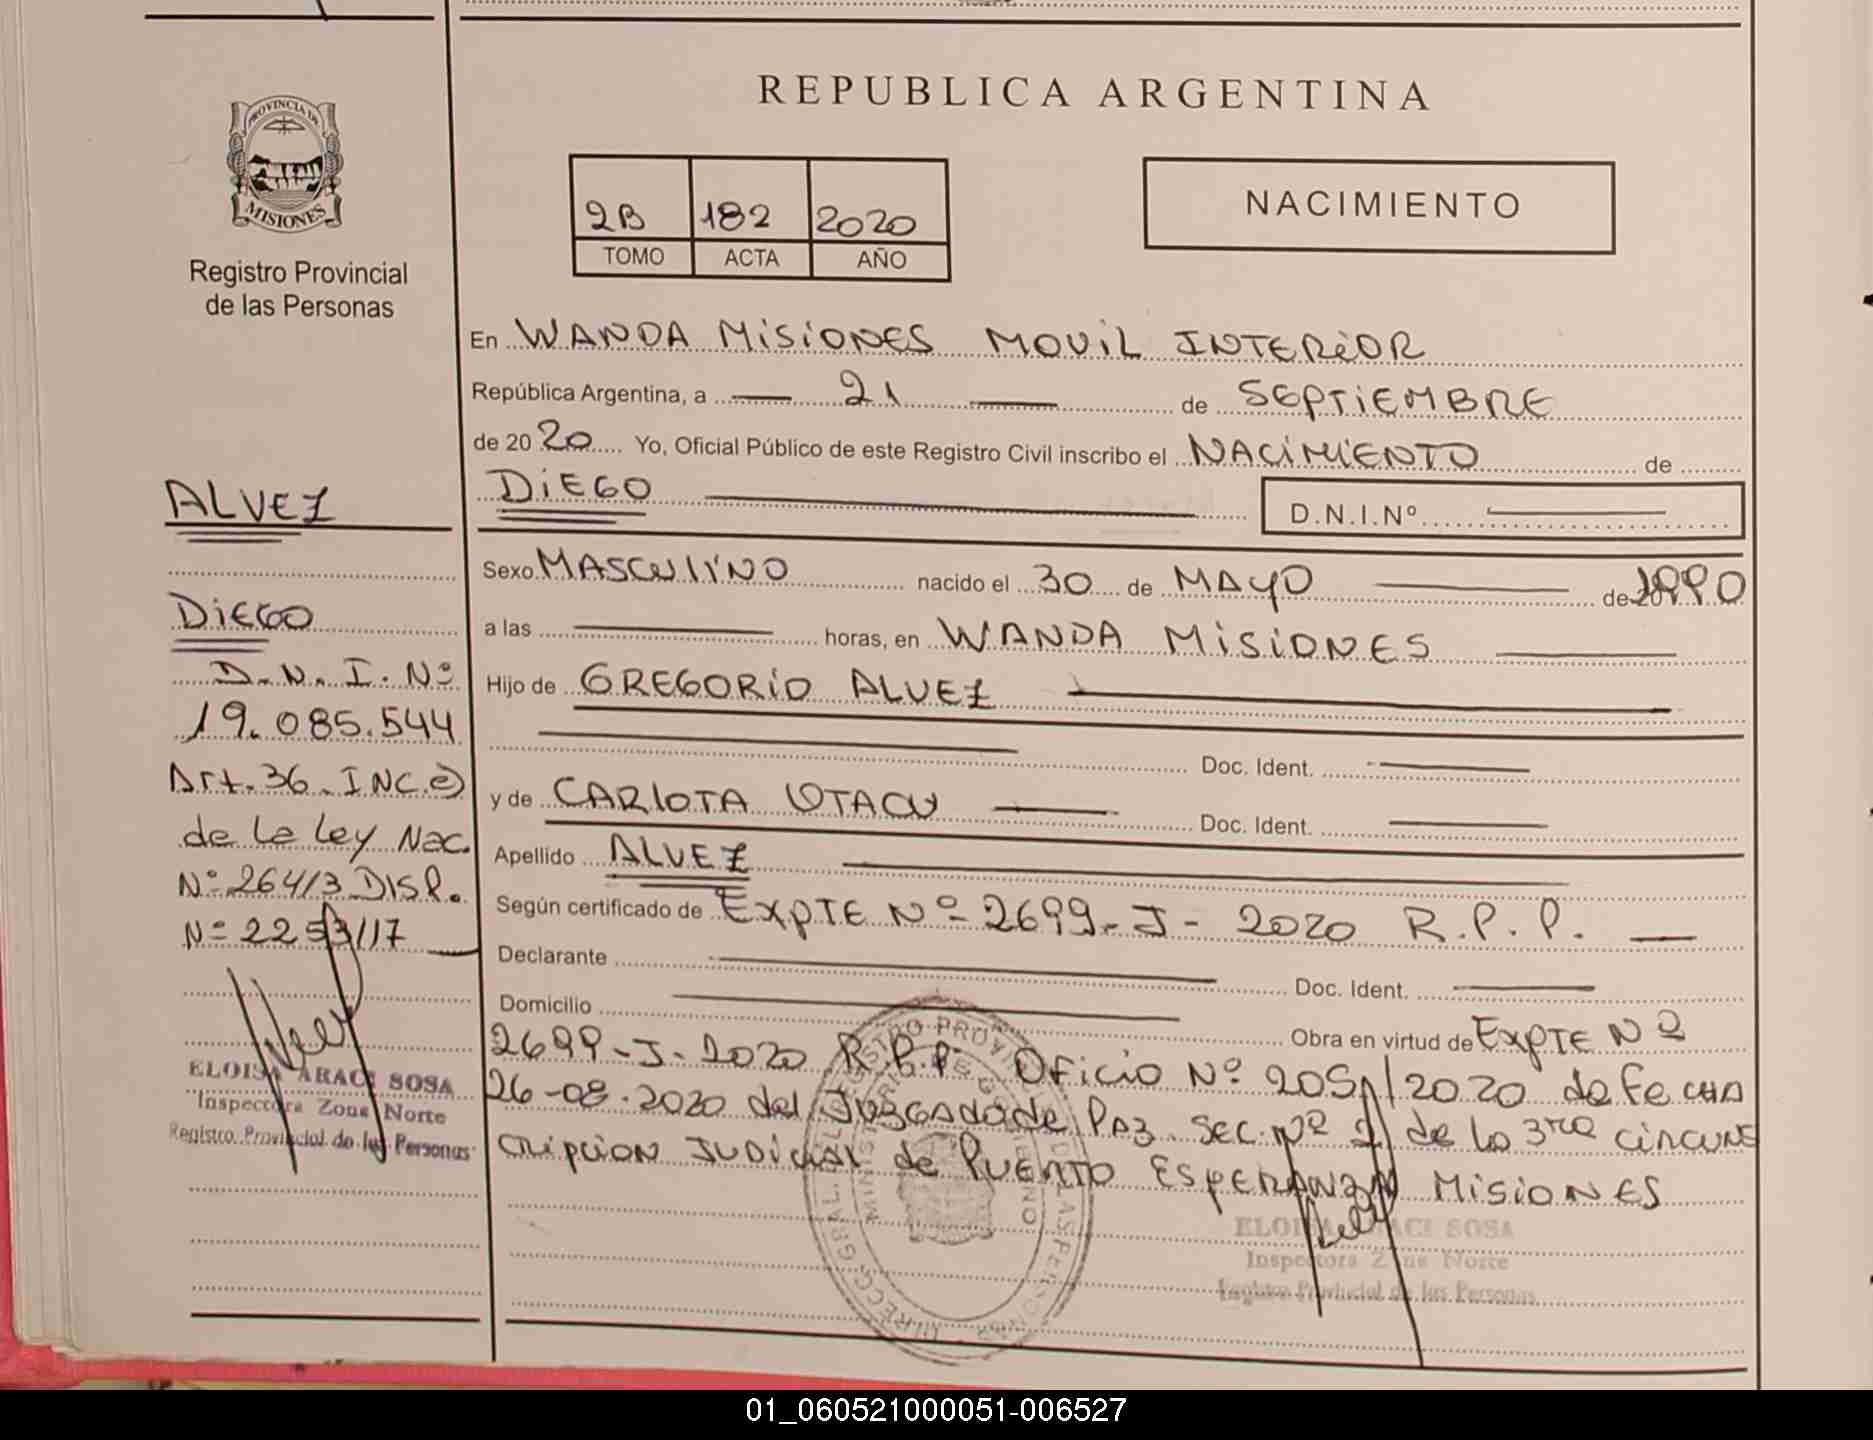 REPUBLICA ARGENTINA
PROVINCIA DE
MISIONES
Registro Provincial
de las Personas
2B 182 2020
TOMO ACTA AÑO
NACIMIENTO
En WANDA MISIONES MOVIL INTERIOR
República Argentina, a 21 de SEPTIEMBRE
de 2020 Yo, Oficial Público de este Registro Civil inscribo el NACIMIENTO de
DIEGO D.N.I.Nº
Sexo MASCULINO nacido el 30 de MAYO de 1990
a las horas, en WANDA MISIONES
Hijo de GREGORIO ALVEZ
Doc. Ident.
y de CARLOTA OTACU Doc. Ident.
Apellido ALVEZ
Según certificado de EXPTE Nº 2699-J-2020 R.P.P.
Declarante Doc. Ident.
Domicilio
Obra en virtud de EXPTE Nº
2699-J-2020 R.P.P. OFICIO Nº 2051/2020 de FECHA
26-08-2020 del Juzgado de Paz SEC. Nº 2 de la 3ra CIRCUNS
CRIPCION JUDICIAL de PUERTO ESPERANZA MISIONES
ELOISA ARACI SOSA
Inspectora Zona Norte
Registro Provincial de las Personas
ALVEZ
DIEGO
D.N.I. Nº
19.085.544
Art. 36. INC. e)
de la Ley Nac.
Nº 26413 DISP.
Nº 2253/17
ELOISA ARACI SOSA
Inspectora Zona Norte
Registro Provincial de las Personas
01_060521000051-006527